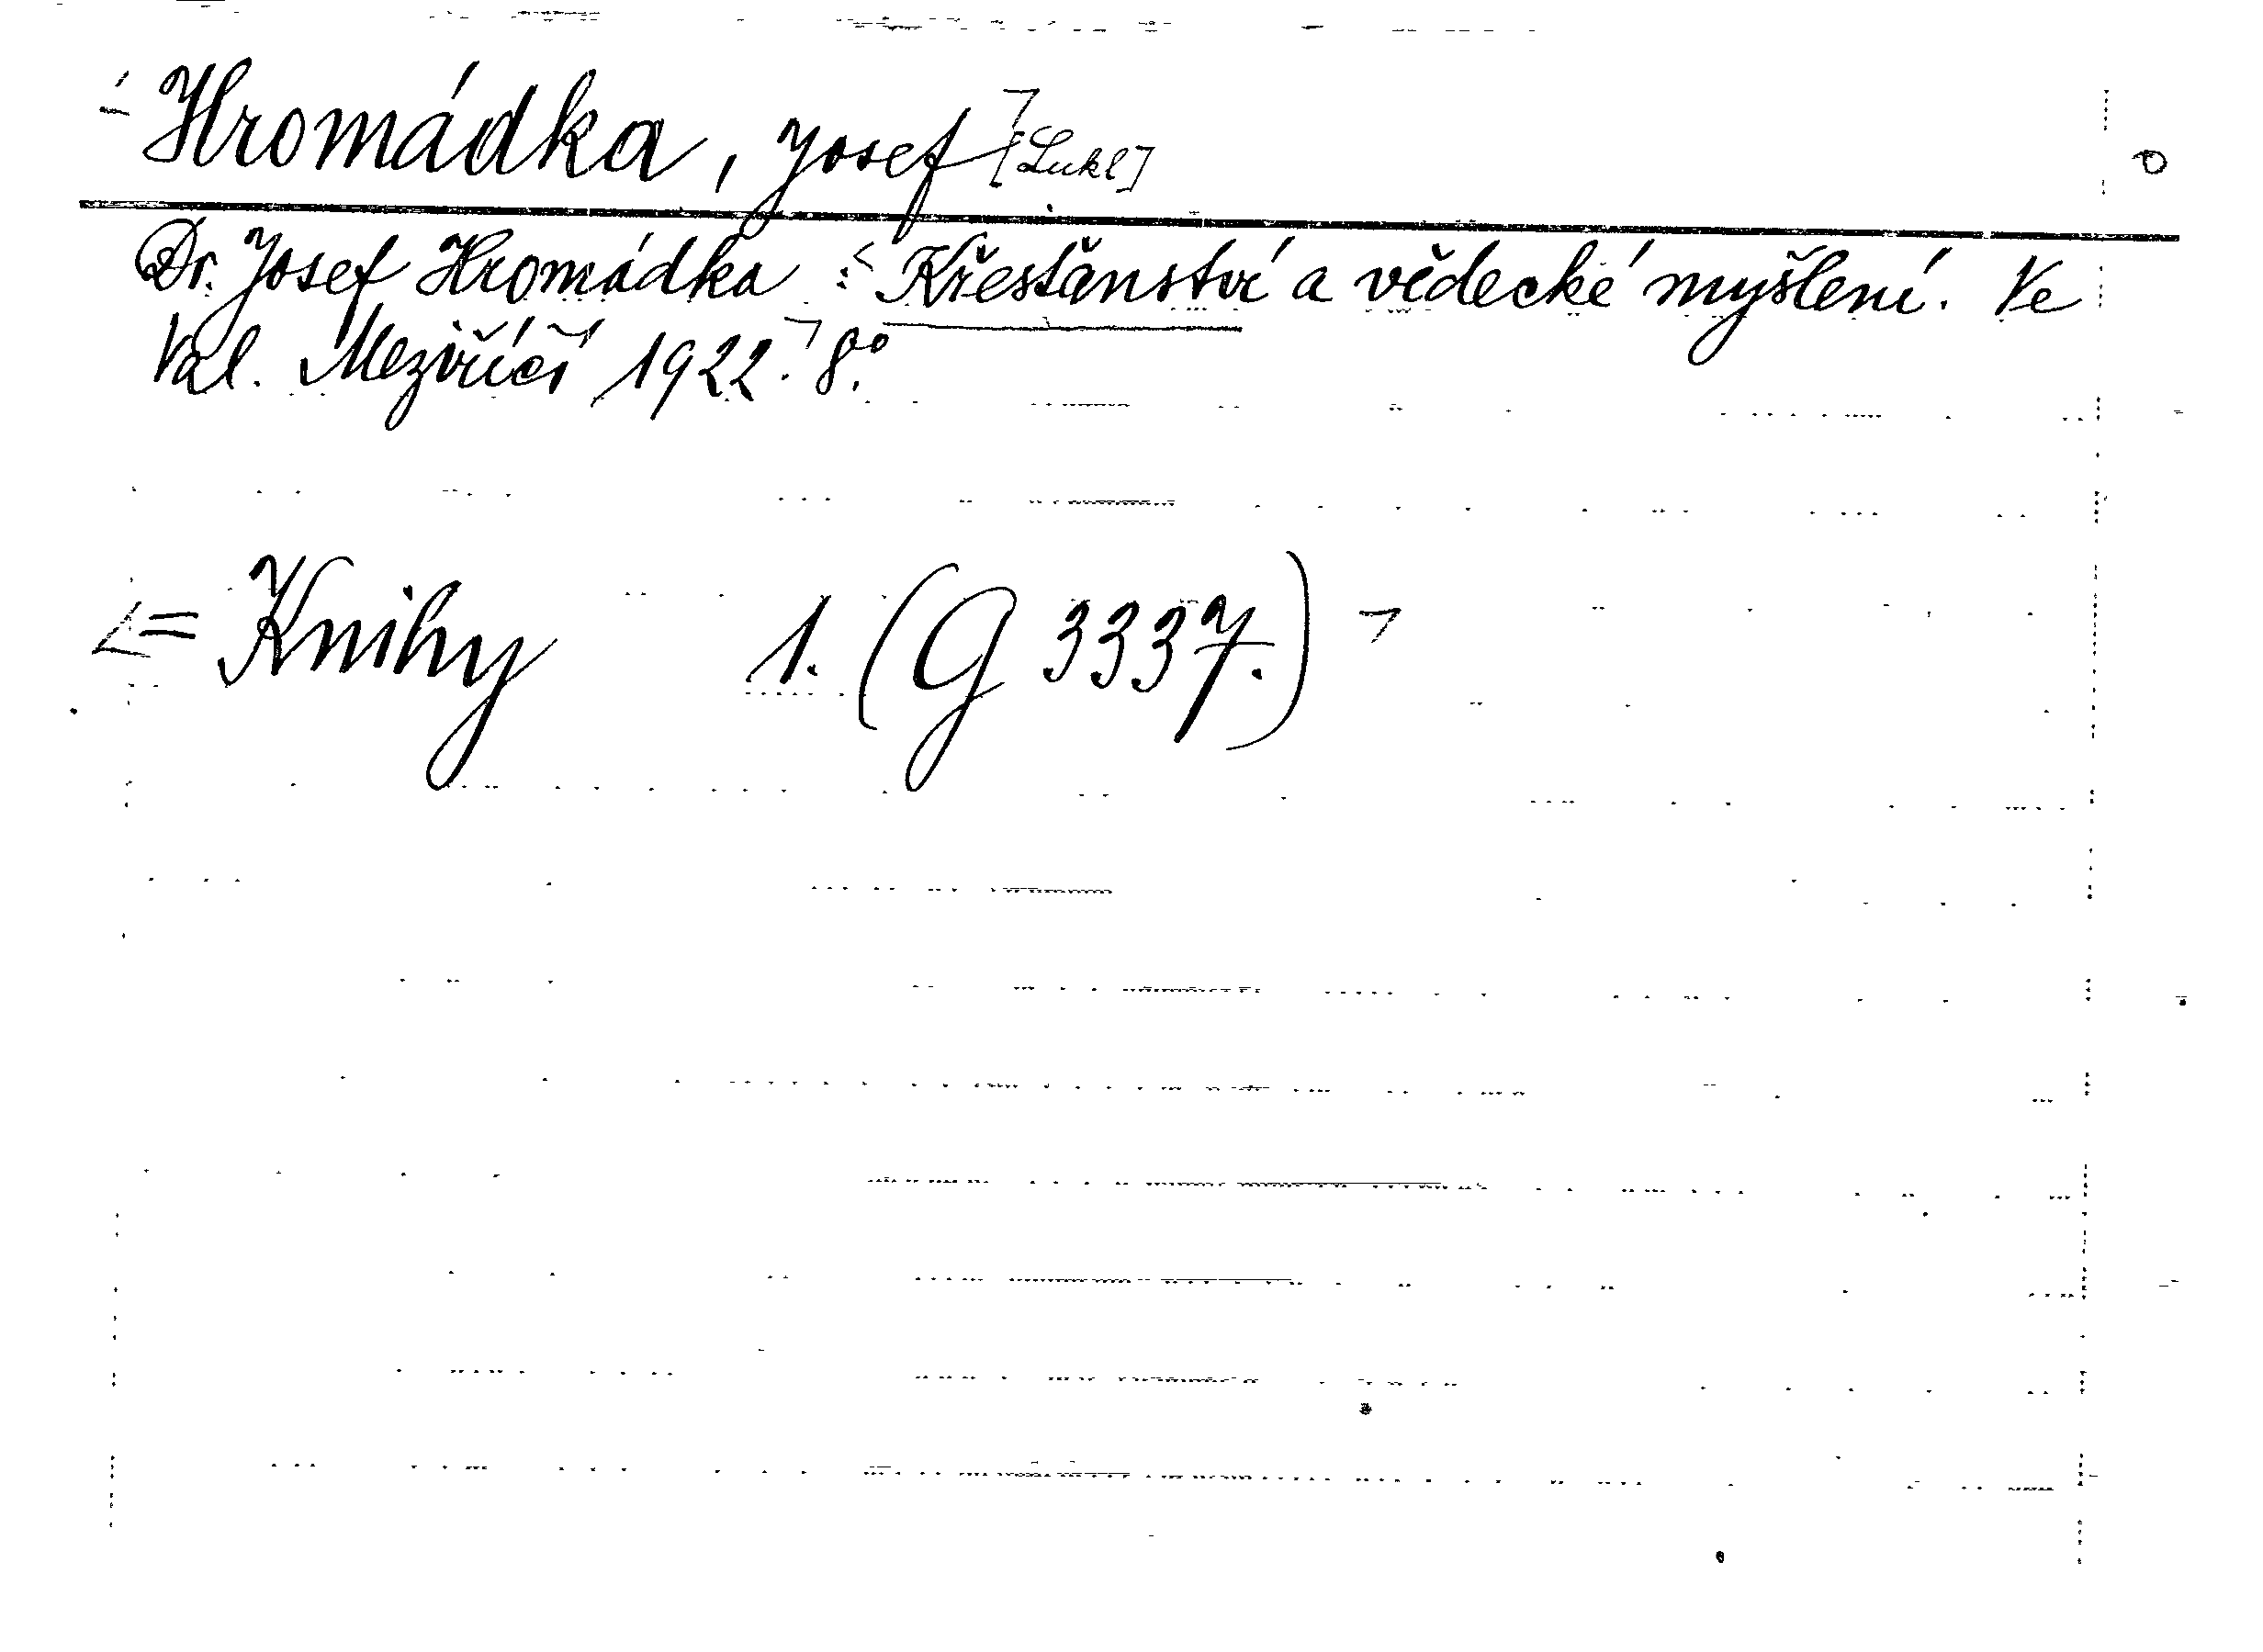 Hromádka, Josef [Lukl]
Dr. Josef Hromádka: Křesťanství a vědecké myšlení. Ve
Val. Meziříčí 1922. 8°.
= Knihy 1. (G 3337.)